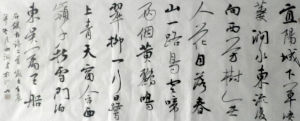 宜陽城下草萋
萋澗水東流復
向西芳樹無
人花自落春
山一路鳥空啼
两個黄鸝鳴
翠柳一行白鷺
上青天窗含西
嶺千秋雪門泊
東吴萬里船